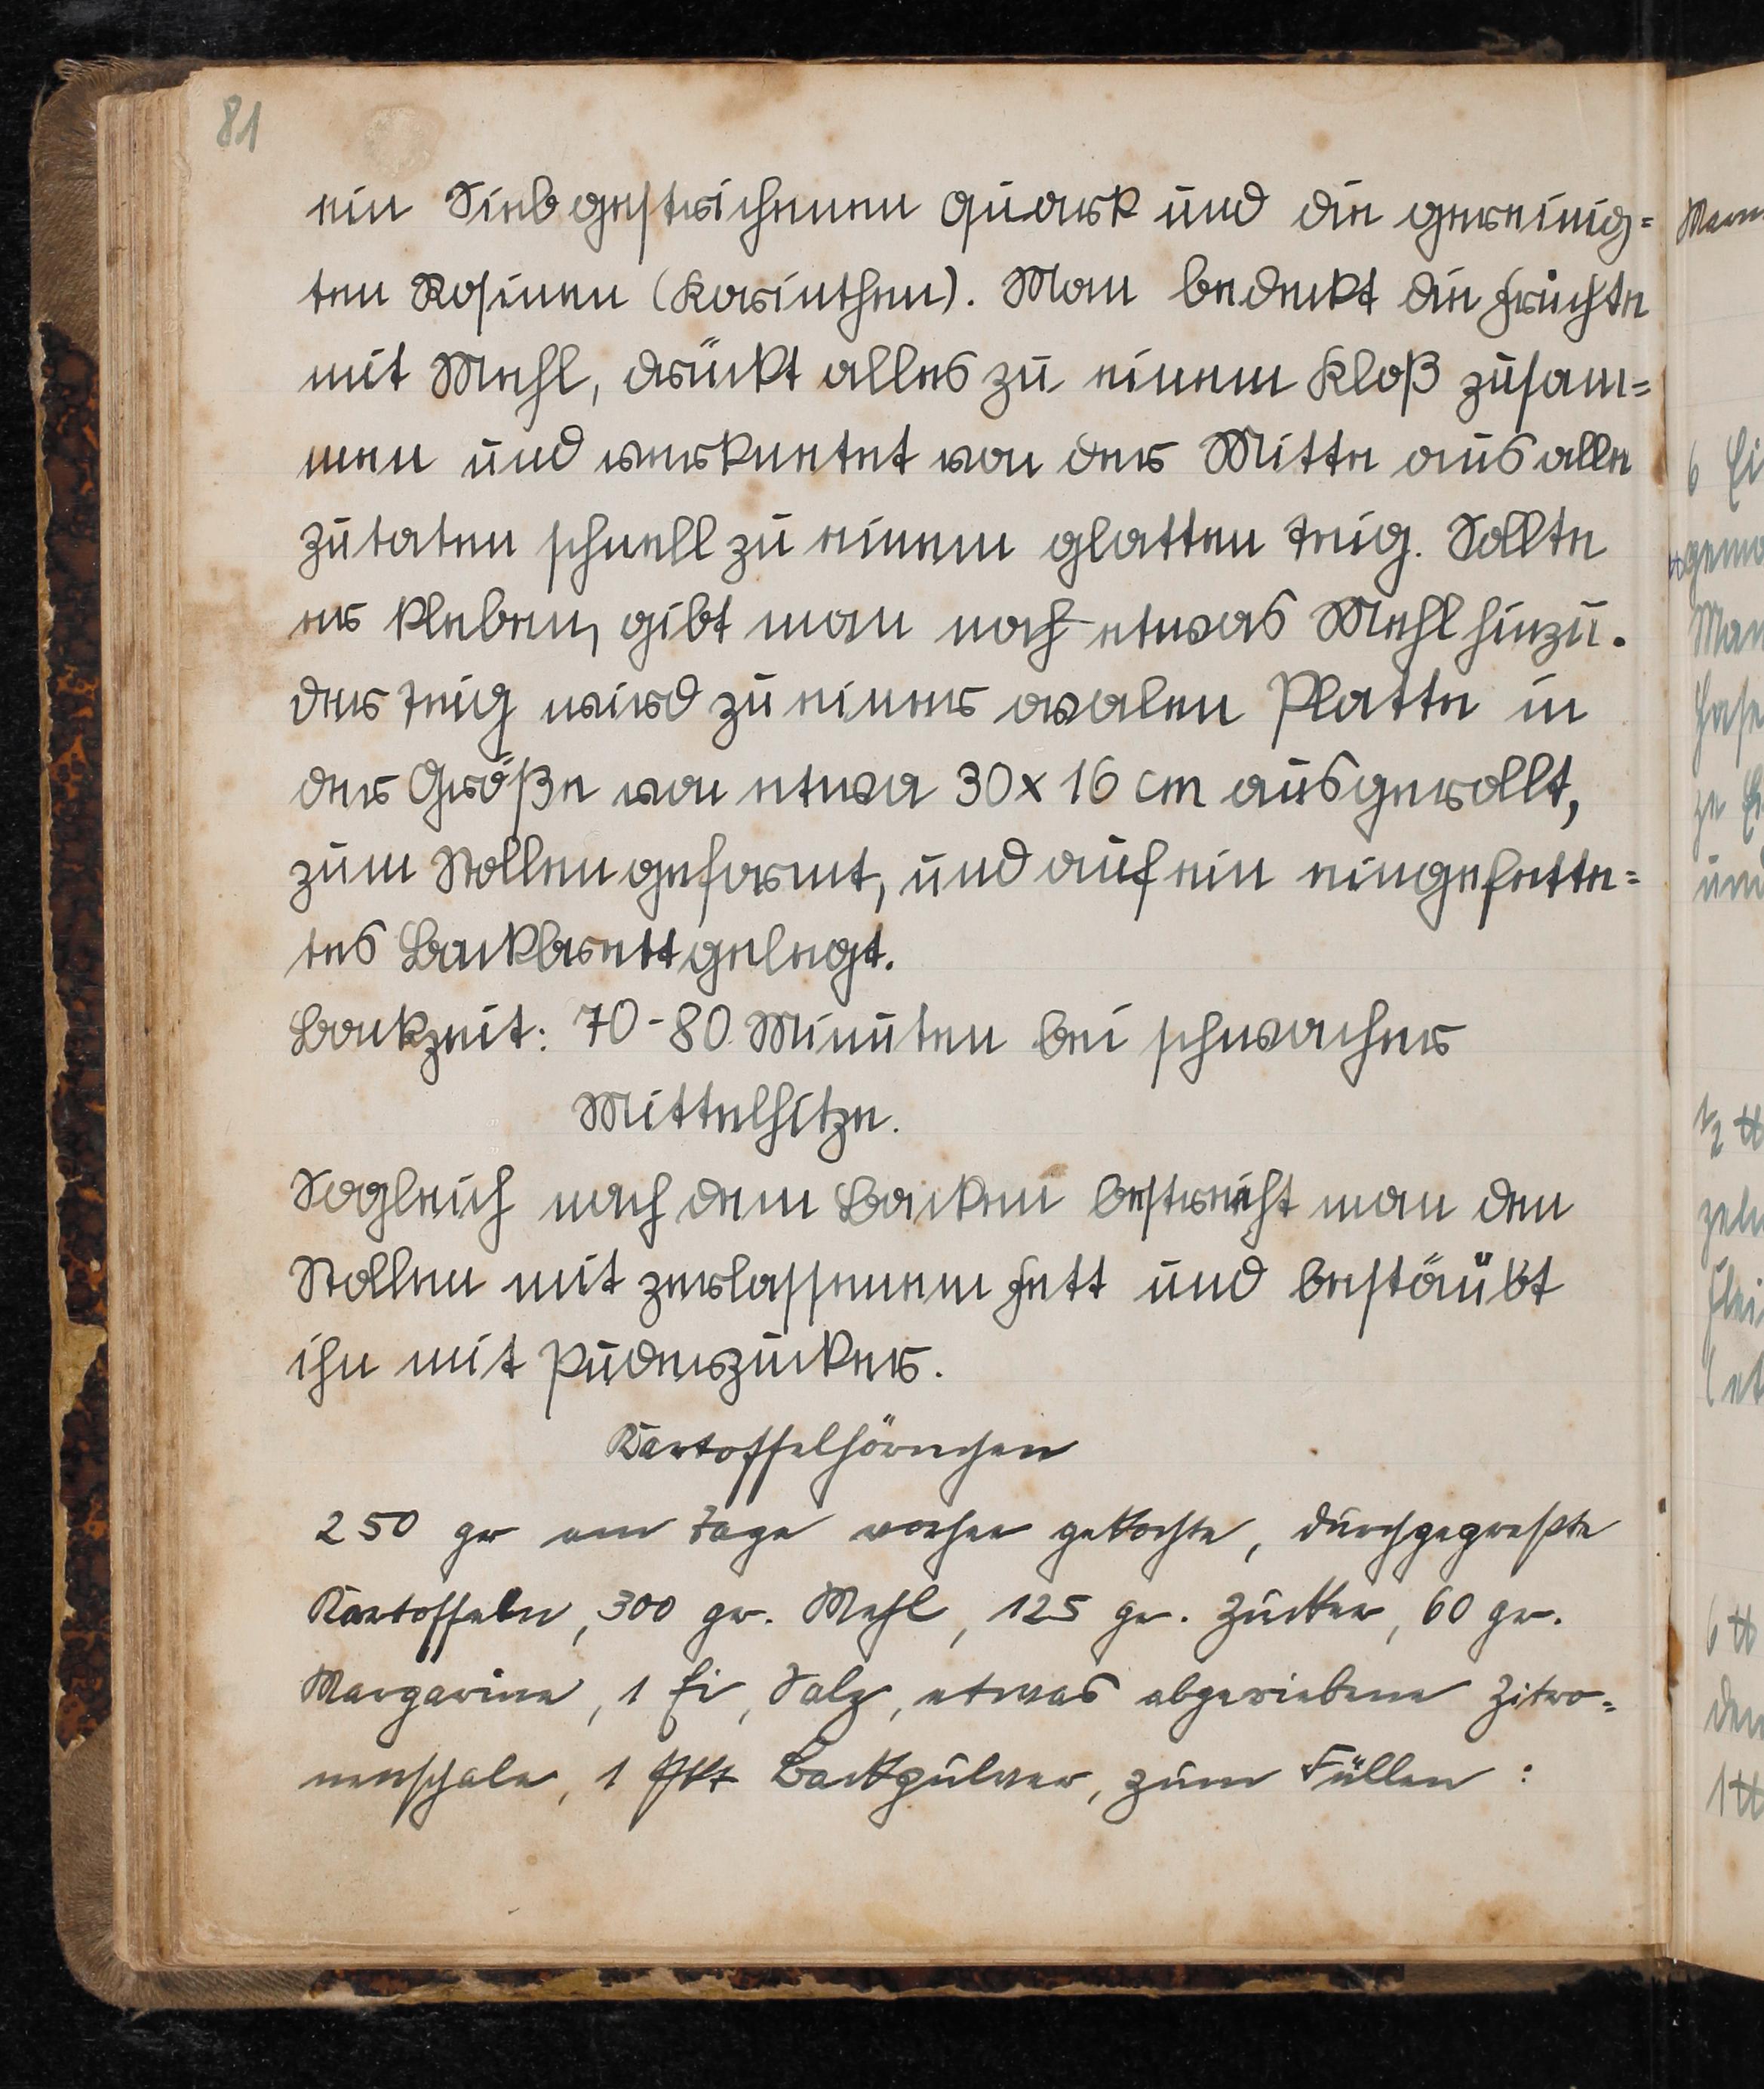 81
ein Sieb gestrichenen Quark und die gereinig=
ten Rosinen (Korinthen). Man bedeckt die Früchte
mit Mehl, drückt alles zu einem Kloß zusam=
men und verknetet von der Mitte aus alle
Zutaten schnell zu einem glatten Teig. Sollte
er kleben, gibt man noch etwas Mehl hinzu.
Der Teig wird zu einer ovalen Platte in
der Größe von etwa 30x16 cm ausgerollt,
zum Stollen geformt, und auf ein eingefette=
tes Backbrett gelegt.
Backzeit: 70-80 Minuten bei schwacher
Mittelhitze.
Sogleich nach dem Backen bestreicht man den
Stollen mit zerlassenem Fett und bestäubt
ihn mit Puderzucker.
Kartoffelhörnchen
250 gr am Tage vorher gekochte, durchgepreßte
Kartoffeln, 300 gr. Mehl, 125 gr. Zucker, 60 gr.
Margarine, 1 Ei, Salz, etwas abgeriebene Zitro=
nenschale, 1 Pkt Backpulver, zum Füllen :
6 Ei
und
1/2 ℔
6 ℔
1 ℔